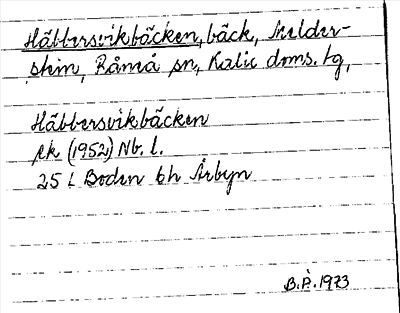 Häbbersvikbäcken, bäck, Melder-
stein, Råneå sn, Kalix doms. tg,
Häbbersvikbäcken
ek (1952) Nb. l.
25 L Boden 6h Årbyn
B.P. 1973